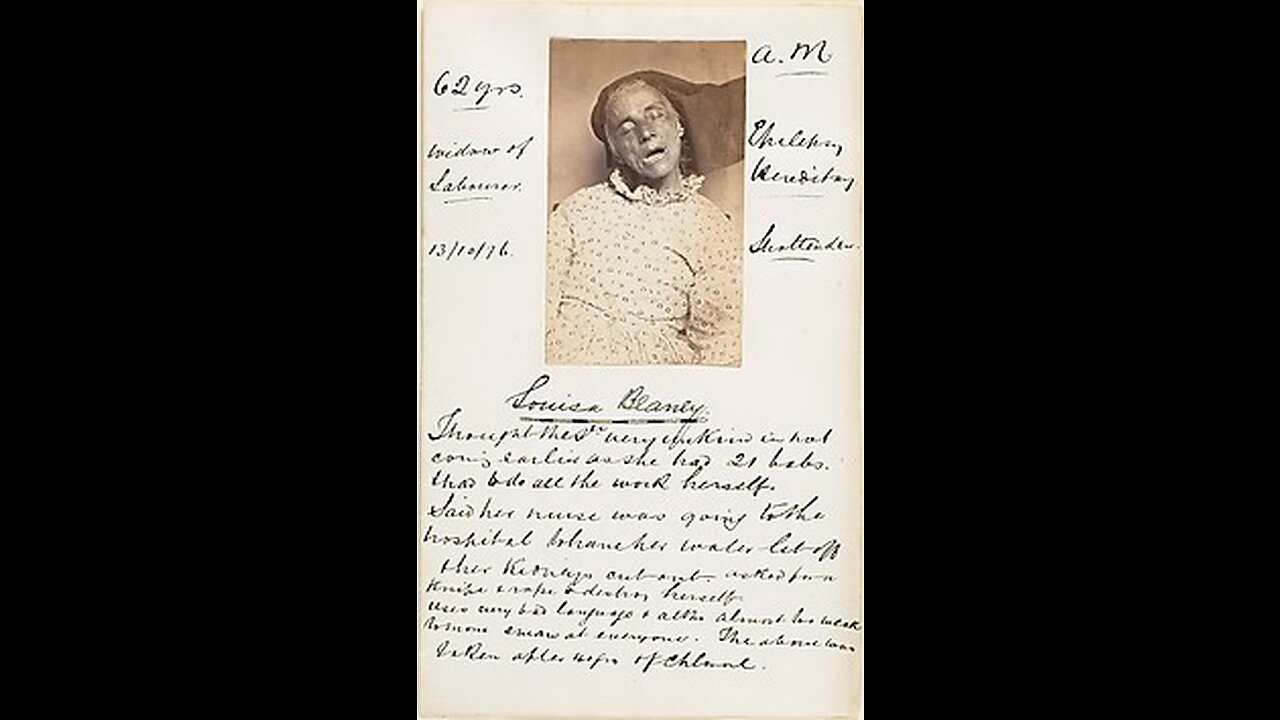 62 yrs.
widow of
Labourer.
13/10/76.
a. M
Epilepsy
Hereditary
Louisa Blaney.
Thought the Dr very unkind in not
coming earlier as she had 21 babs.
& had to do all the work herself.
Said her nurse was going to the
hospital to have her water let off
& her Kidneys cut out. asked for a
Knife & rope to destroy herself.
uses very bad language & altho almost too weak
to move swears at everyone. The above was
taken after of Chloral.